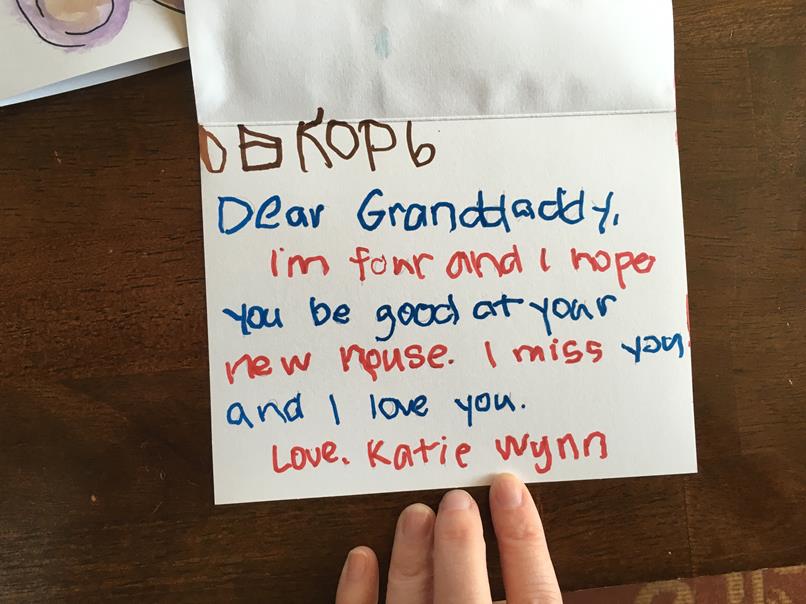 Dear Granddaddy,
I'm four and I hope
you be good at your
new house. I miss you
and I love you.
Love. Katie Wynn